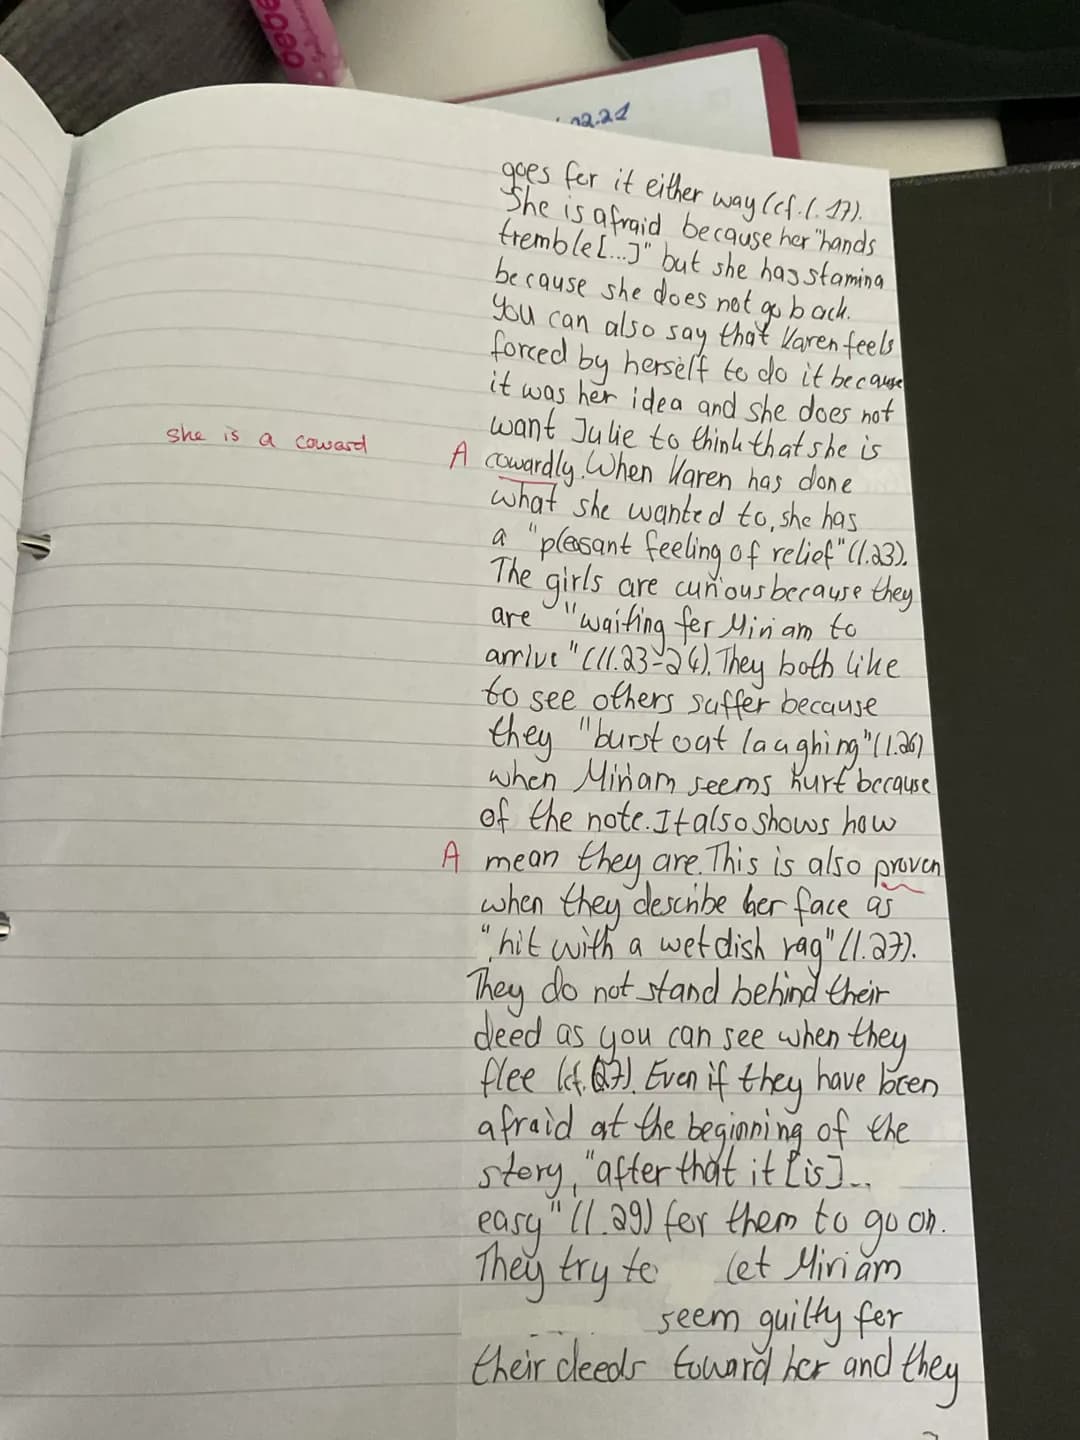 02.21
goes for it either way (cf. l. 17).
She is afraid because her "hands
tremble[...]" but she has stamina
because she does not go back.
You can also say that Karen feels
forced by herself to do it because
it was her idea and she does not
want Julie to think that she is
she is a coward
A cowardly. When Karen has done
what she wanted to, she has
a "pleasant feeling of relief" (l.23).
The girls are curious because they
are "waiting for Miriam to
arrive" (ll.23-24). They both like
to see others suffer because
they "burst out laughing" (l.26)
when Miriam seems hurt because
of the note. It also shows how
A mean they are. This is also proven
when they describe her face as
"hit with a wet dish rag" (l.27).
They do not stand behind their
deed as you can see when they
flee (cf. 27). Even if they have been
afraid at the beginning of the
story, "after that it [is]...
easy" (l.29) for them to go on.
They try to let Miriam
seem guilty for
their deeds toward her and they